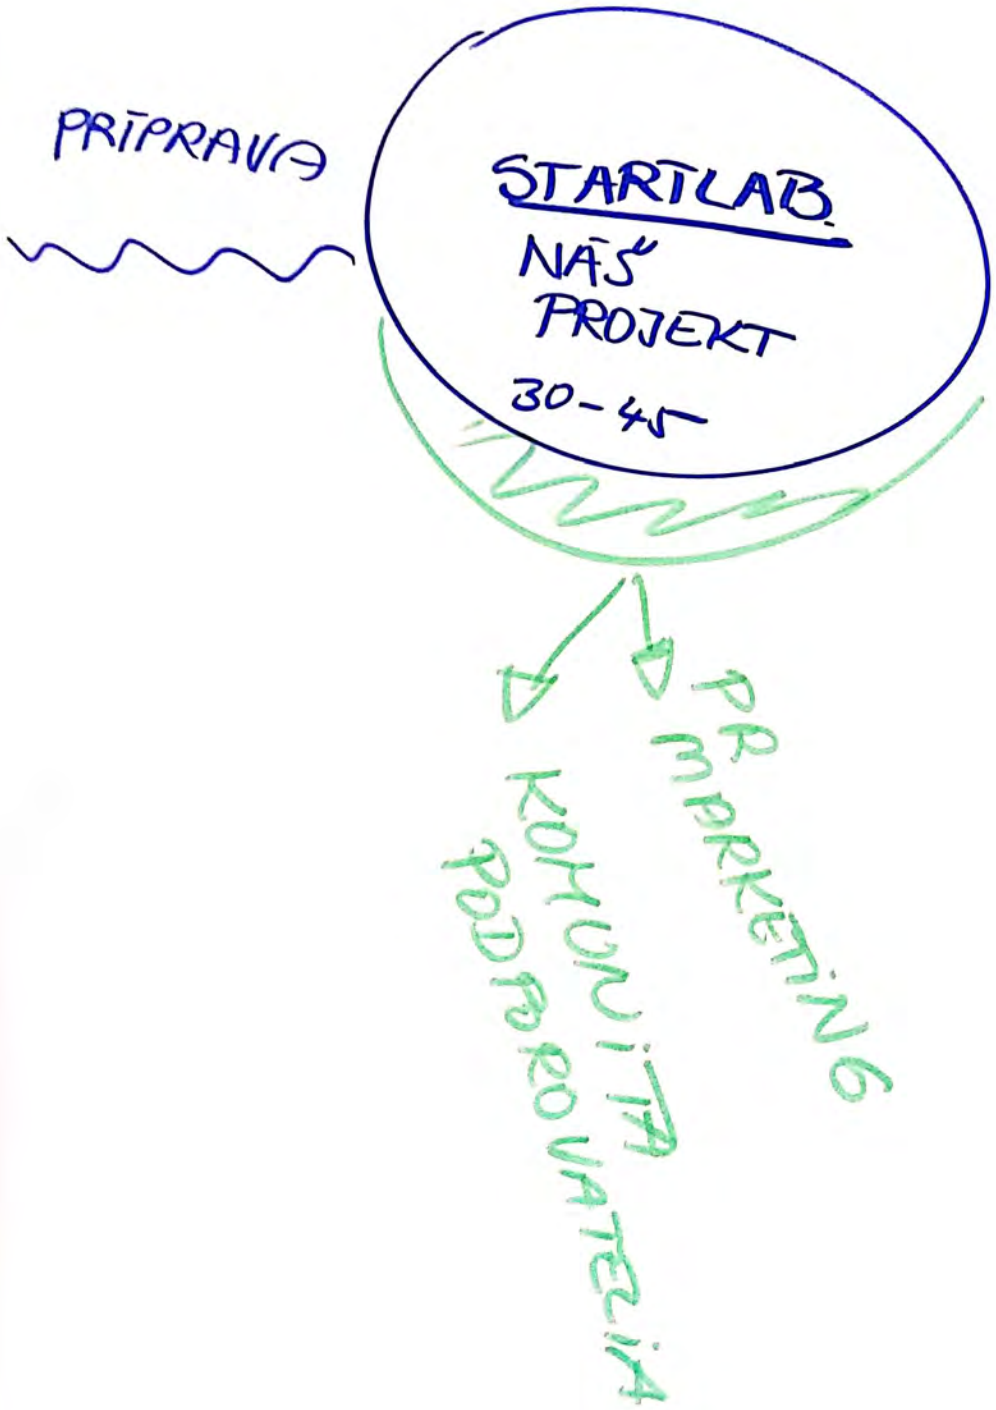 PRÍPRAVA
STARTLAB.
NÁŠ
PROJEKT
30-45
PR
MARKETING
KOMUNITA
PODPOROVATELIA